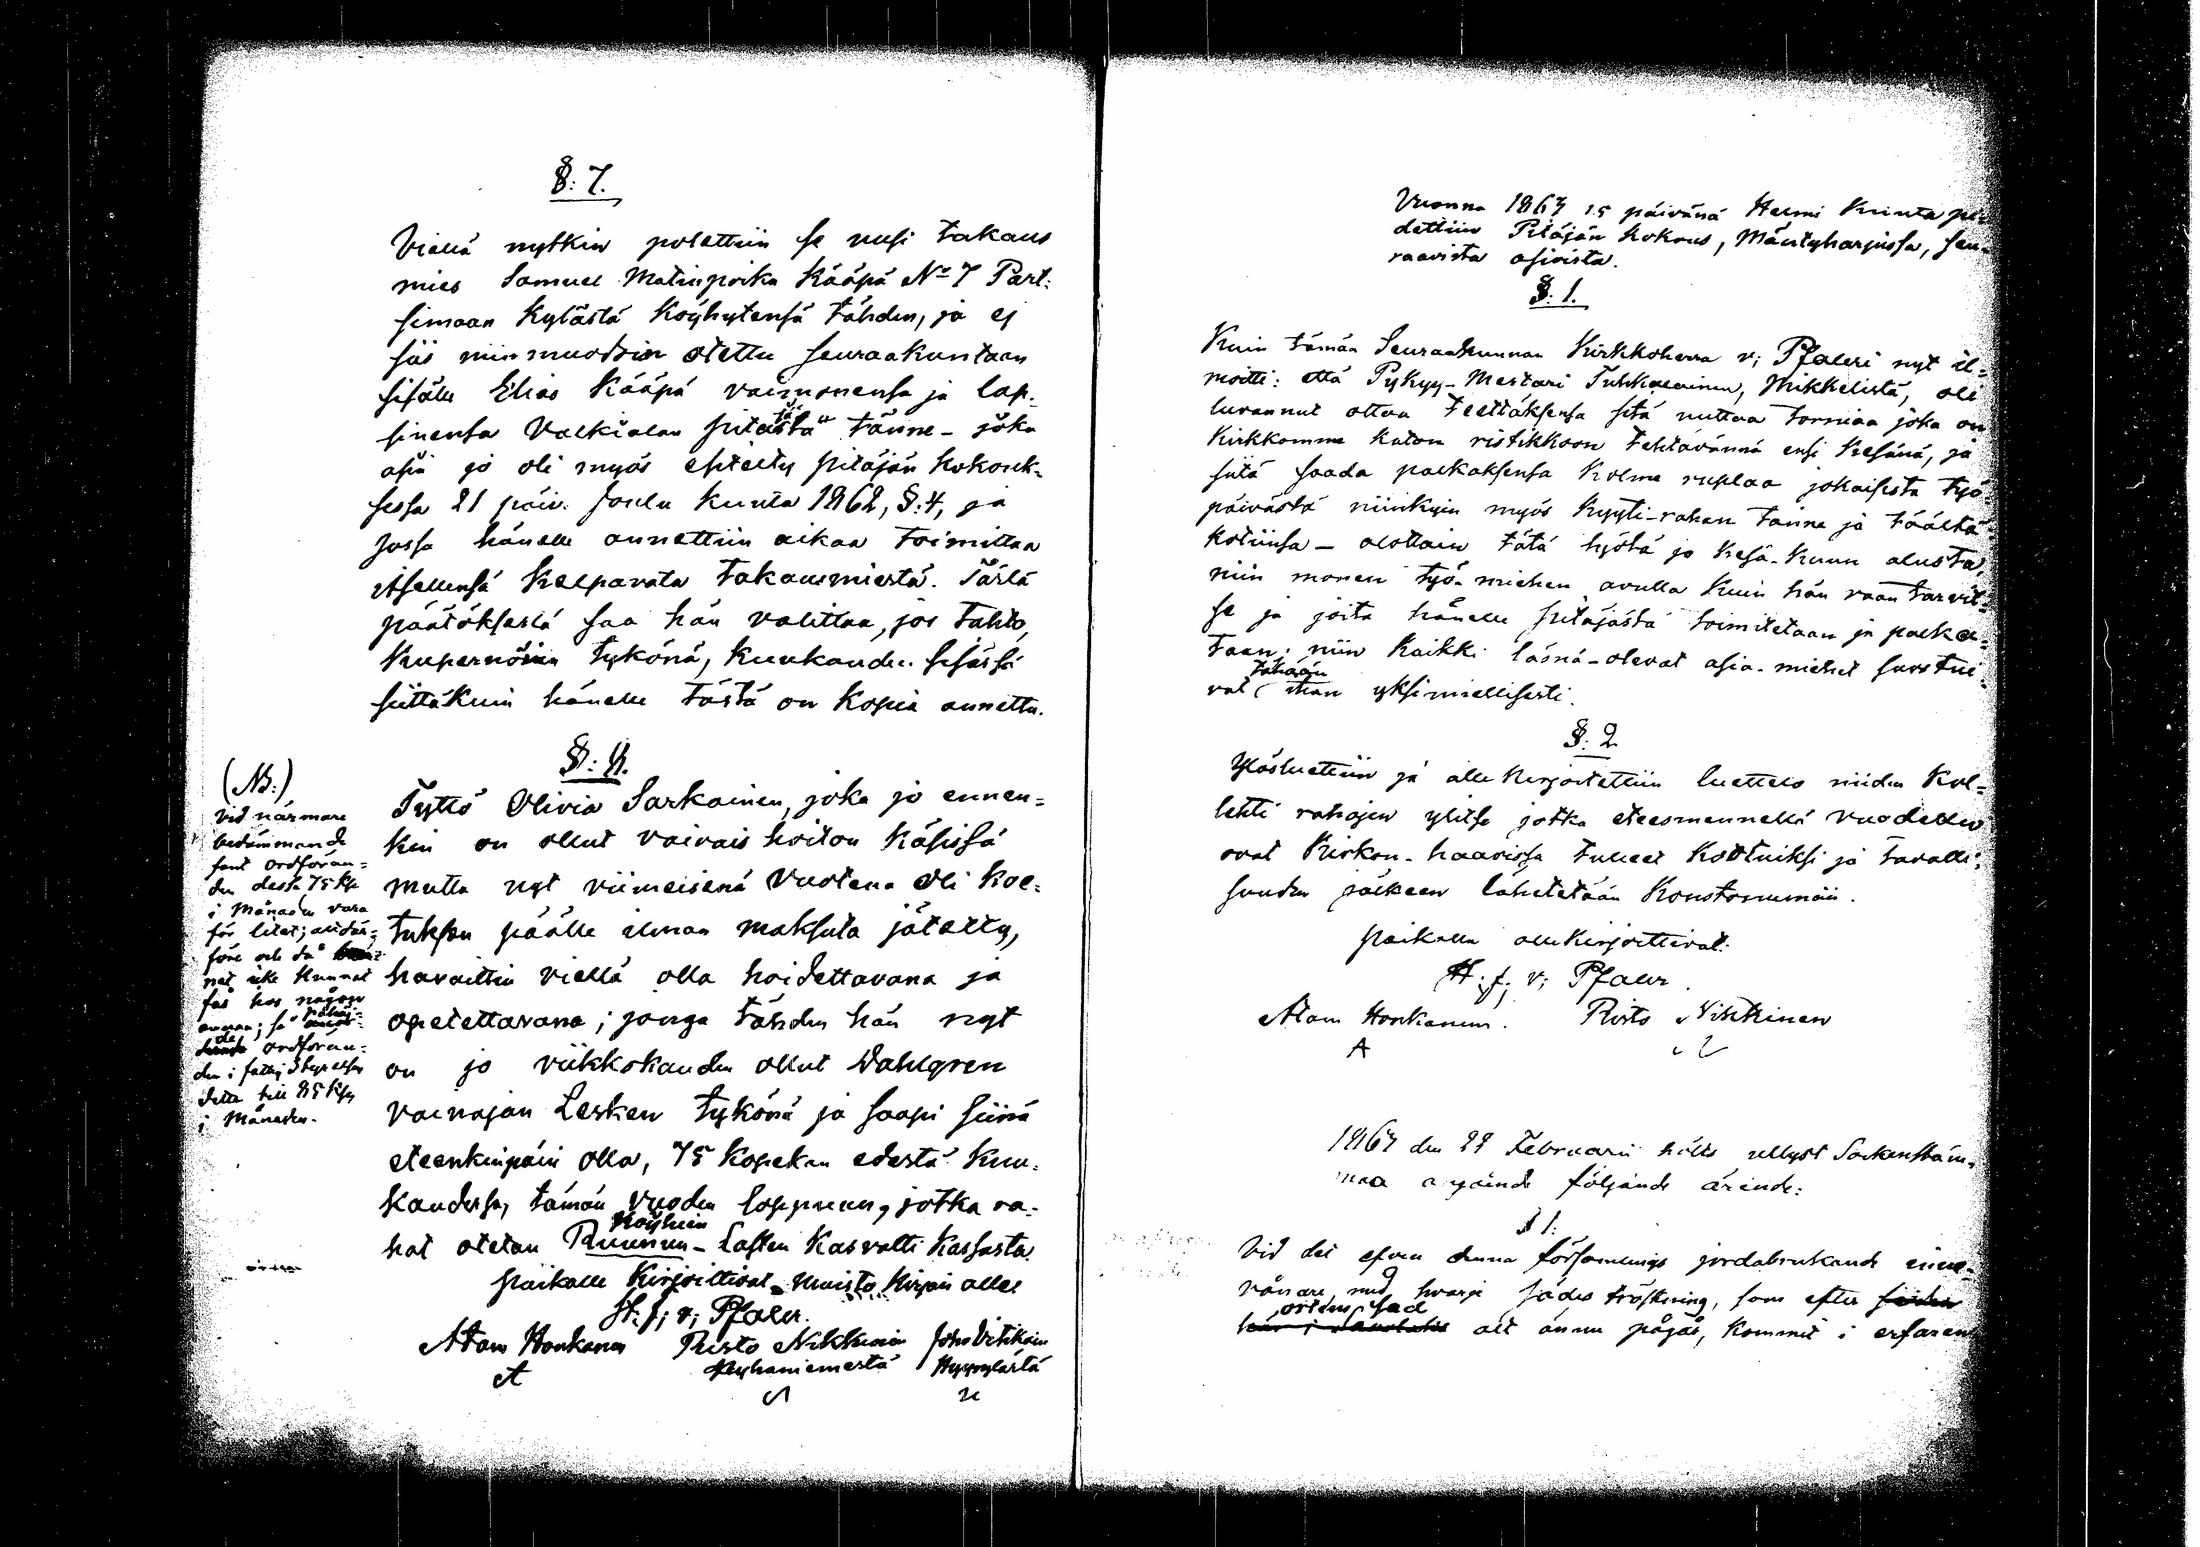 §: 7.
Viellä nytkin poisttiin se uusi takaus
mies Samuel Matinpoika Kääpä No 7 Part:
simaan Kylästä Köyhytensä tähden, ja ej
siis niinmuodoin otettu seuraakuntaan
sisälle Elias Kääpä vaimonensa ja lap-
sinensa Valkialan pitäjästä tänne - joka
asia jo oli myös esitelty pitäjän kokouk-
sessa 21 päiv. Joulu kuuta 1862, §: 4, ja
jossa hänelle annettiin aikaa toimittaa
itsellensä kelpavata takausmiestä. Tästä
päätöksestä saa hän valittaa, jos tahto,
Kupernörin tykönä, kuukauden sisässä
siittäkuin hänelle tästä on kopia annettu.
§: 8.
Tyttö Olivia Sarkainen, joka jo ennen=
kin on ollut vaivais hoiton käsissä
mutta nyt viimeisenä vuotena oli koe:
tuksen päälle ilman maksuta jätetty,
havaittin viellä olla hoidettavana ja
opetettavana; jonga tähden hän nyt
on jo viikkokauden ollut Dahlgren
vainajan Lesken tykönä ja saapi siinä
eteenkinpäin olla, 75 kopekan edestä kuu-
kaudessa, tämän vuoden loppuun, jotka ra-
hat otetan Köyhein Ruunun-lasten kasvatti kassasta.
paikalle kirjoittivat muisto kirjan alle
H. f; v; Pfaler.
Atam Honkanen Risto Nikkinen Joho Vitikain
A Pyhaniemestä Hyyrylästä
(NB:)
Vid närmare
bedömmande
fant ordföran=
den dessa 75 kop
i Månaden vara
för litet;
före och då
net icke kunnat
fås hos någon
annan; så
ordföran:
den i fattig Styrelsen
detta till 85 kop
i Månaden.
Vuonna 1863 15 päivänä Helmi kuuta pi-
dettiin Pitäjän kokous, Mäntyharjussa, seu-
raavista asioista.
§: 1.
Kuin tämän Seuraakunnan Kirkkoherra v; Pfaleri nyt il=
moitti: että Pykyy-Mestari Tuhkalainen, Mikkelistä, oli
luvannut ottaa teettäksensä sitä uuttaa tornia joka on
Kirkkomme katon ristikkoon tehtävännä ensi kesänä, ja
siitä saada palkaksensa kolme ruplaa jokaisesta työ-
päivästä niinkuin myös kyyti-rahan tänne ja täältä
kotiinsa - alottain tätä työtä jo kesä-kuun alusta,
niin monen työ-miehen avulla kuin hän vaan tarvit-
se ja joita hänelle pitäjästä toimitetaan ja palka-
taan; niin kaikki läsnä-olevat asia-miehet suostui-
vat tähään yksimiellisesti.
§: 2
Ylösluettiin ja alle kirjoitettiin luettelo niiden kol=
lehti rahojen ylitse jotka eteesmennellä vuodella
ovat Kirkon-haavissa tulleet kootuiksi ja tavalli:
suuden jälkeen lähetetään Konstoriumiin.
paikalla allekirjoittivat:
H. f; v; Pfaler.
Atam Honkanen. Risto Nikkinen
A
1863 den 22 Februarii hölls utlyst Sockenstäm-
ma angående följande ärende:
§ 1:
Vid det efven denna församlings jordabrukande inne-
vånare, med hvarje sädes tröskning, som efter
ortens sed alt ännu pågår, kommit i erfaren